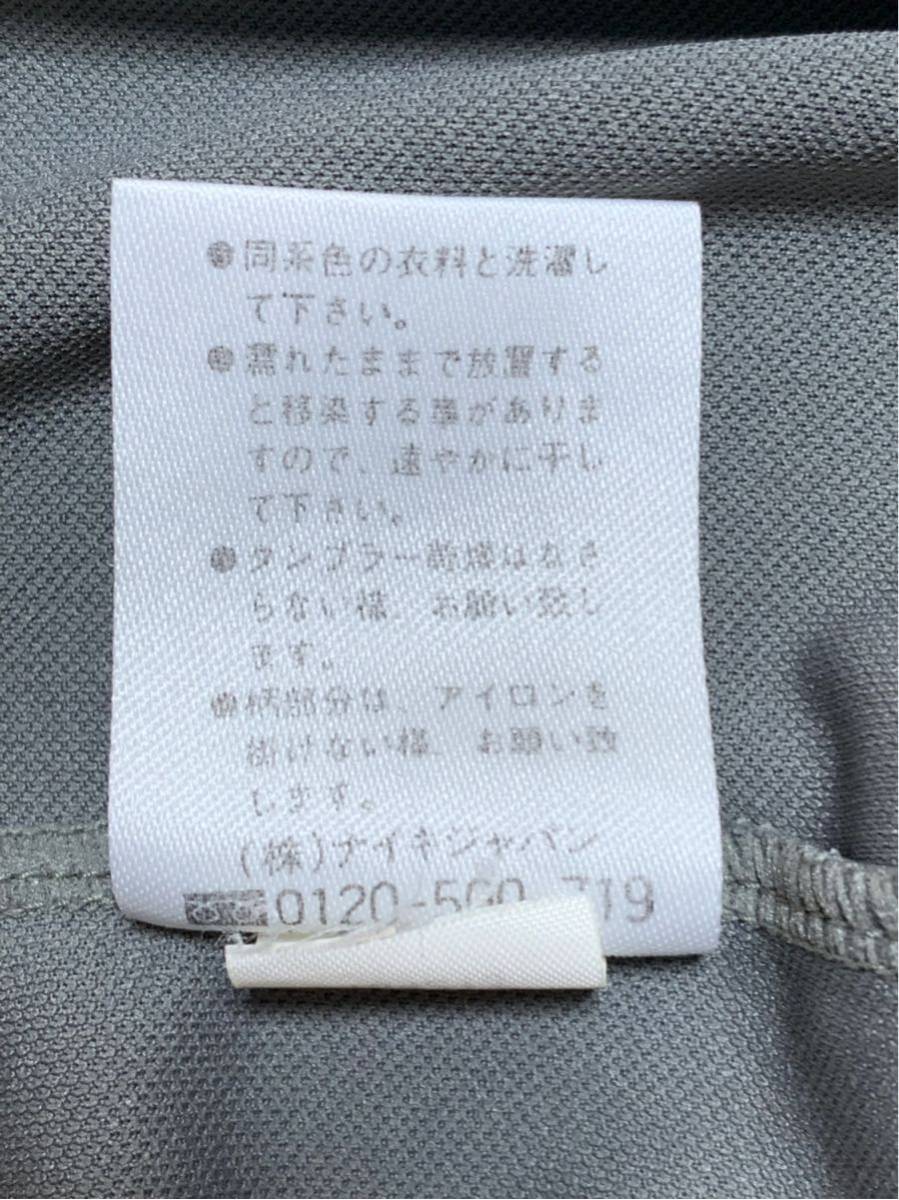 ●同系色の衣料と洗濯し
て下さい。
●濡れたままで放置する
と移染する事がありま
すので、速やかに干し
て下さい。
●タンブラー乾燥はなさ
らない様、お願い致し
ます。
●柄部分は、アイロンを
掛けない様、お願い致
します。
(株)ナイキジャパン
0120-500-719